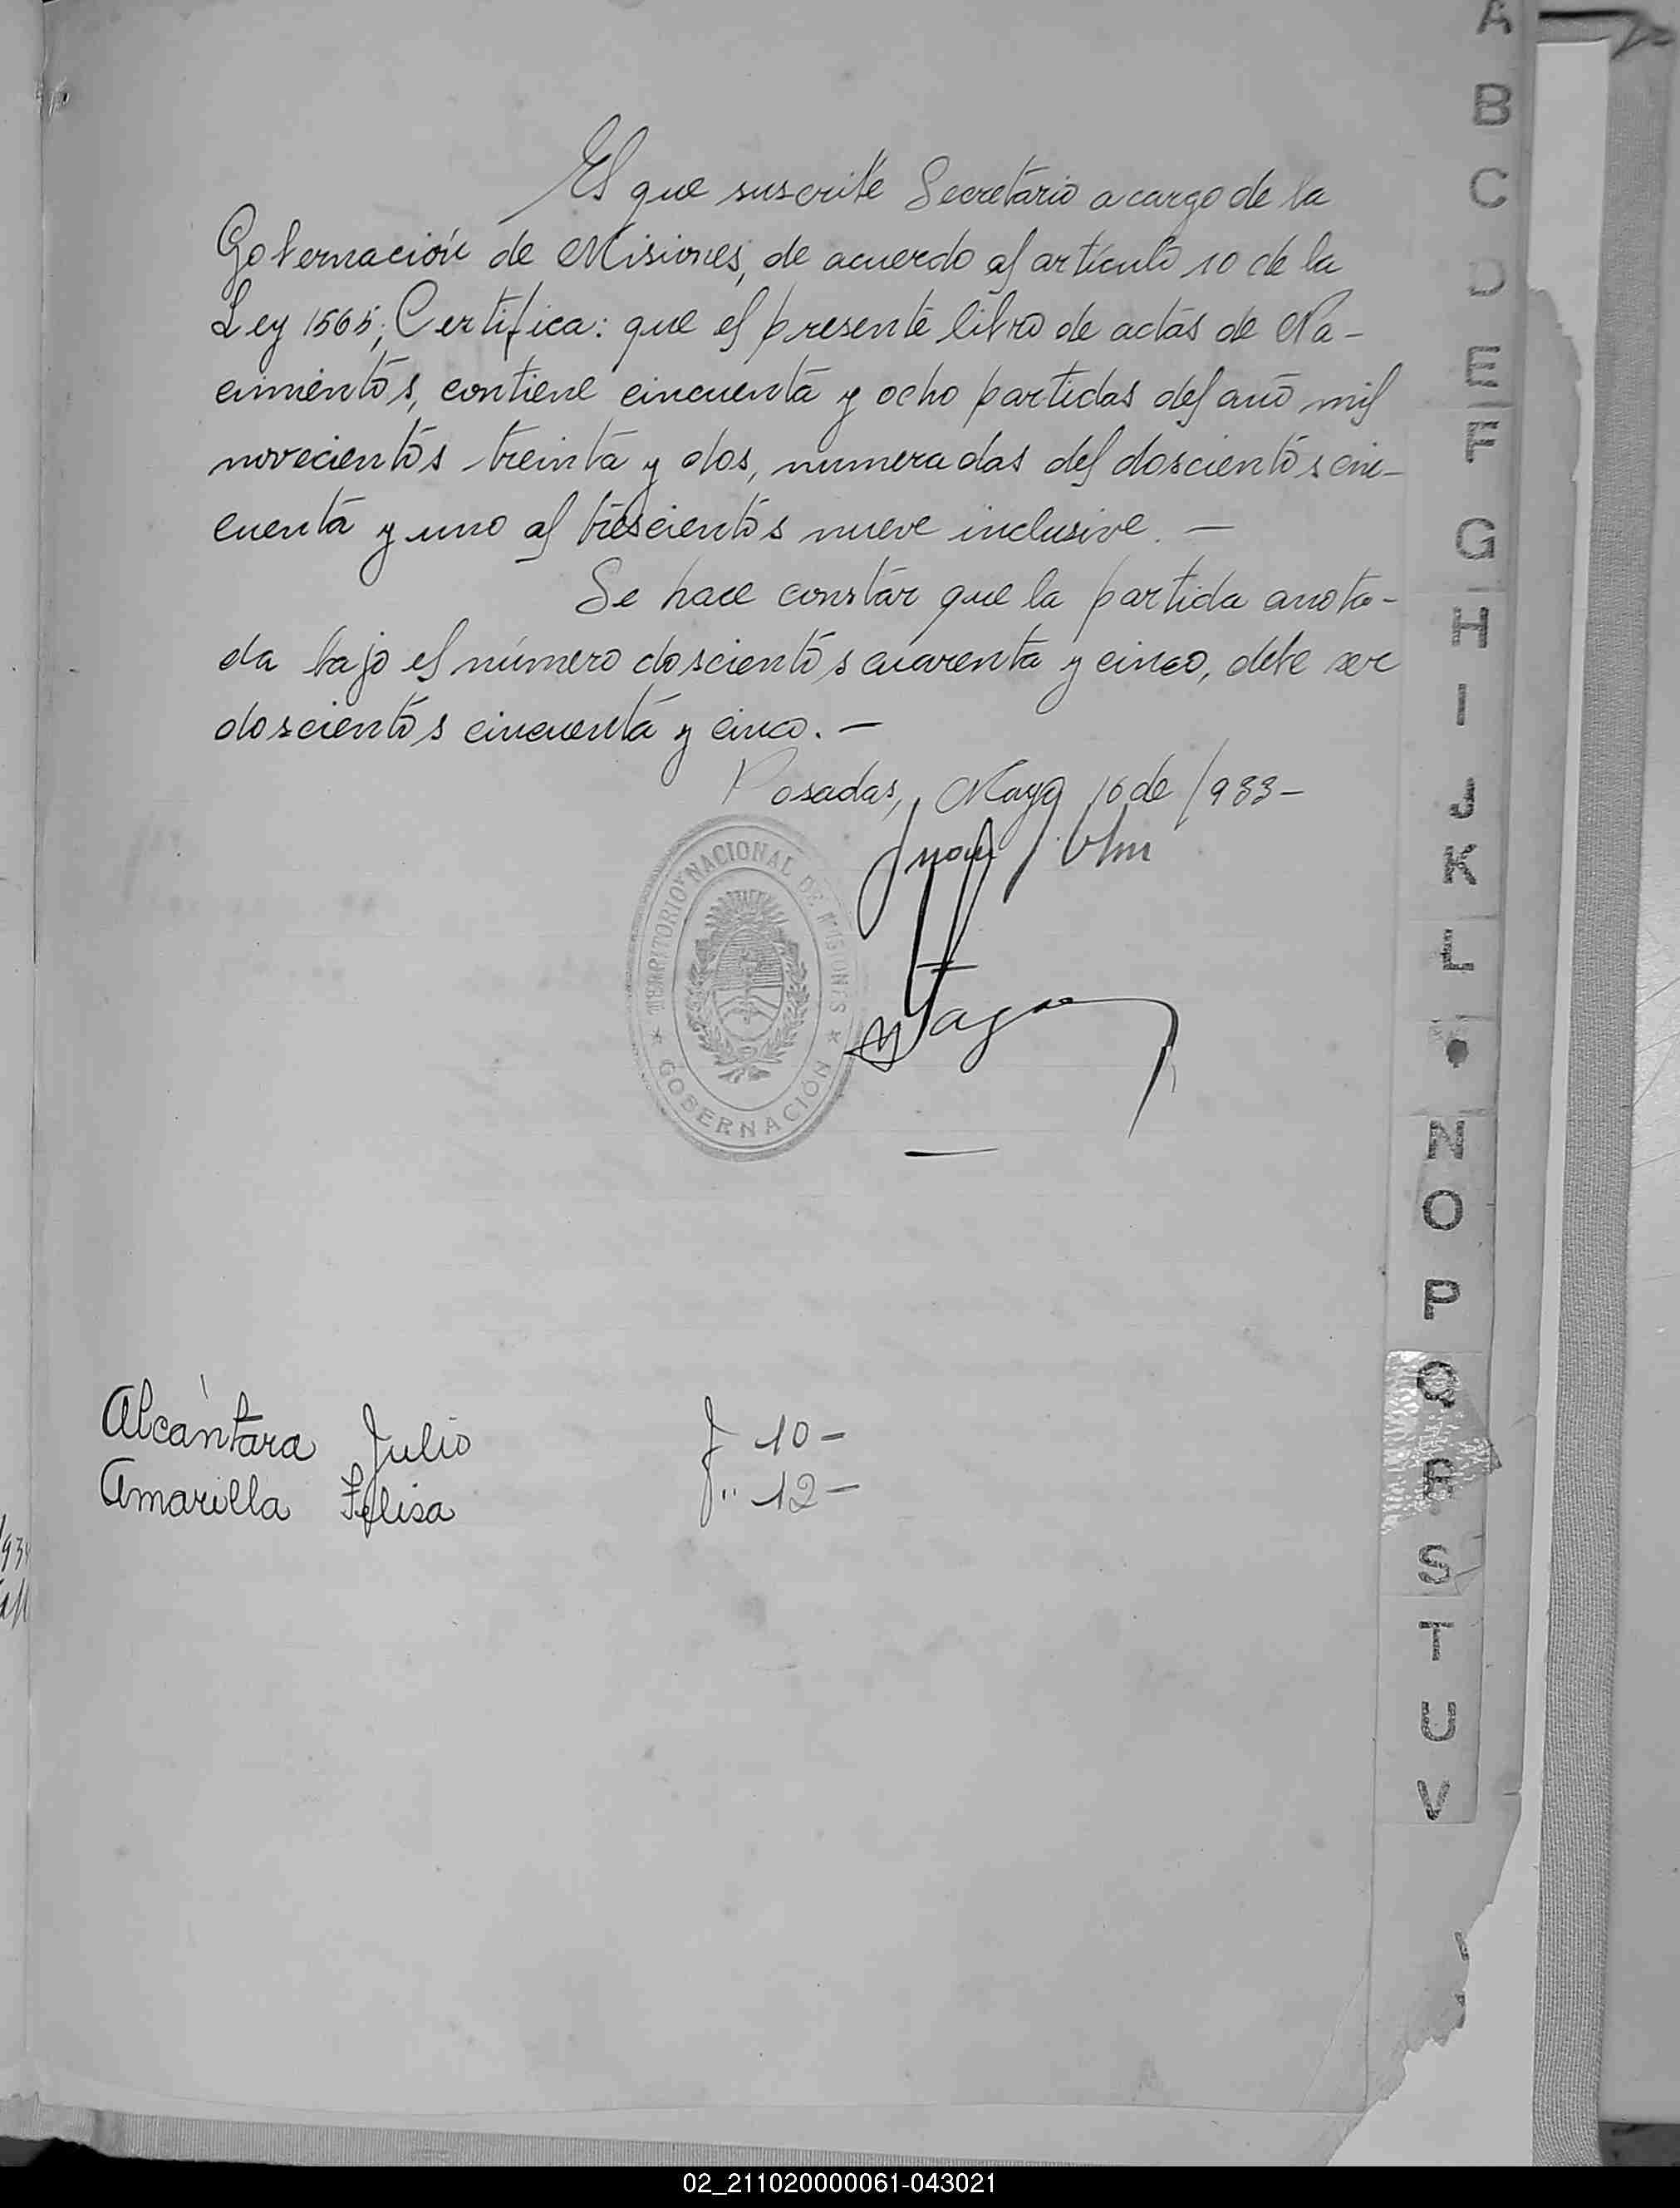 El que suscribe Secretario a cargo de la
Gobernación de Misiones, de acuerdo al artículo 10 de la
Ley 1565; Certifica: que el presente libro de actas de Na-
cimientos, contiene cincuenta y ocho partidas del año mil
novecientos treinta y dos, numeradas del doscientos cin-
cuenta y uno al trescientos nueve inclusive. —
Se hace constar que la partida anota-
da bajo el número doscientos cuarenta y cinco, debe ser
doscientos cincuenta y cinco. —
Posadas, Mayo 16 de 1933—
Juan
TERRITORIO NACIONAL DE MISIONES
GOBERNACIÓN
Alcántara Julio f 10 —
Amarilla Felisa f " 12 —
A
B
C
D
E
F
G
H
I
J
K
L
N
O
P
Q
R
S
T
U
V
02_211020000061-043021